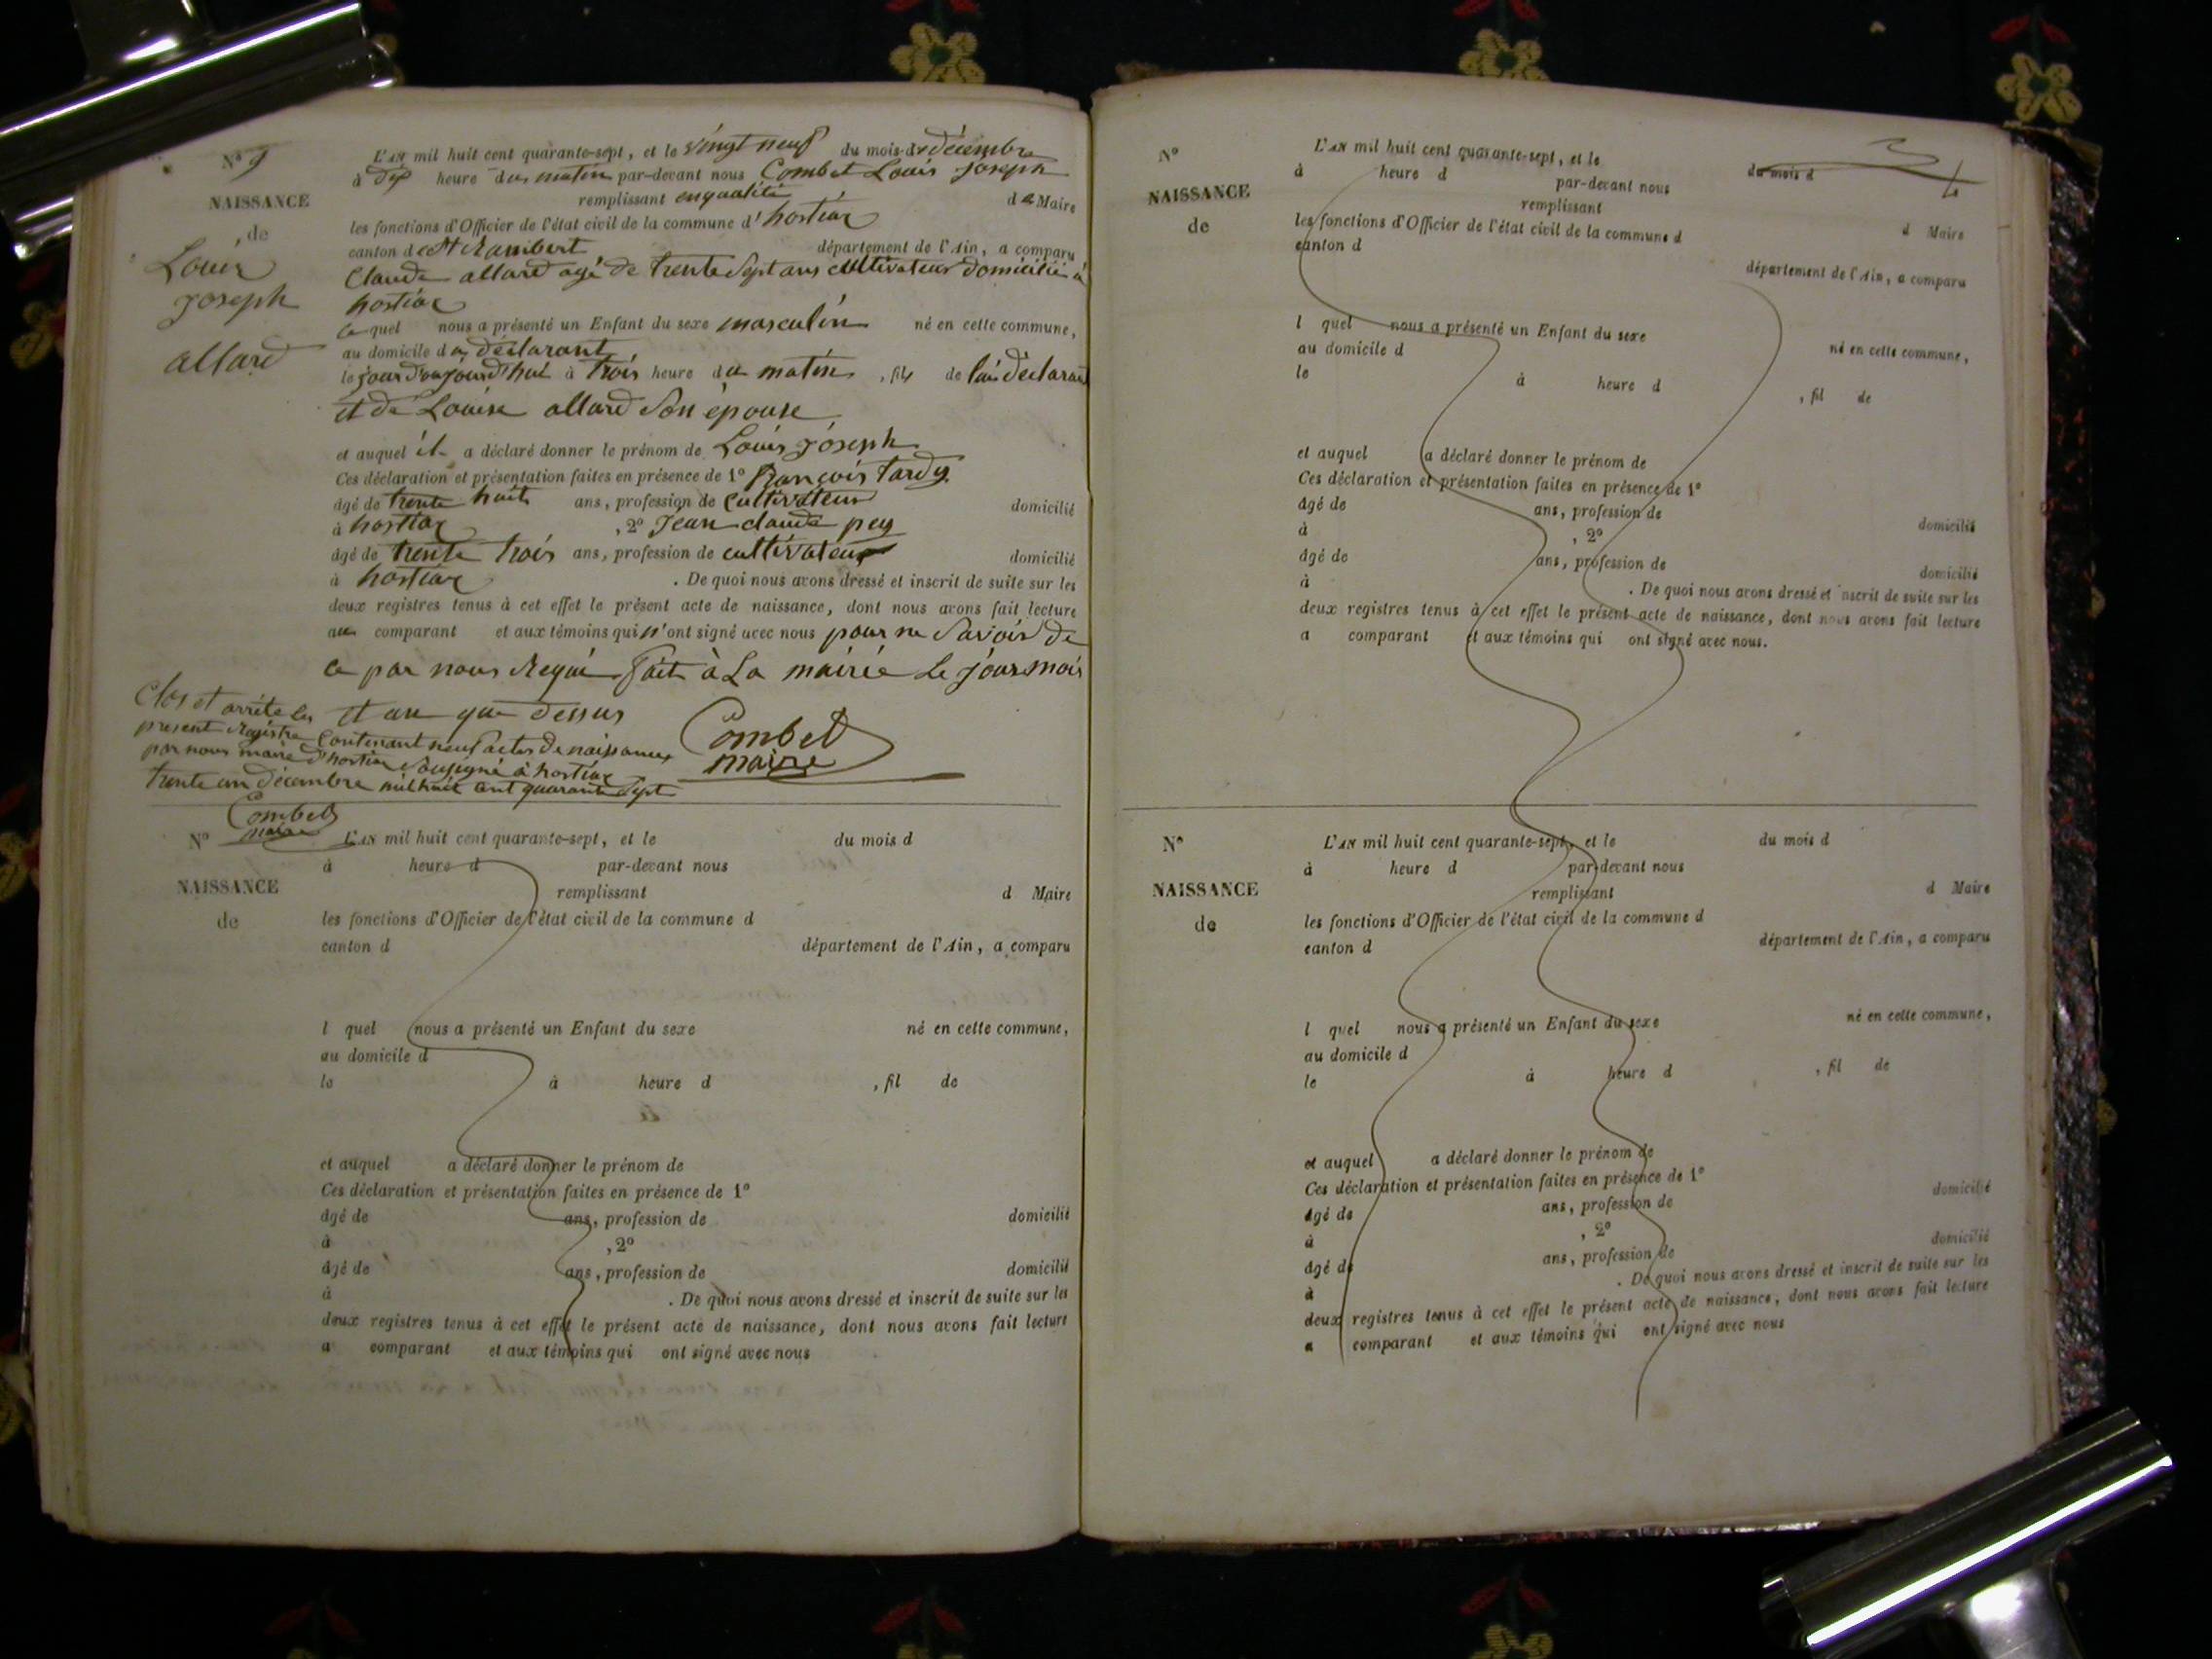 N° 9
NAISSANCE
de
Louis
Joseph
allard
L'AN mil huit cent quarante-sept, et le vingt neuf du mois de décembre
à dix heure du matin par-devant nous Combet Louis Joseph
remplissant enqualité de Maire
les fonctions d'Officier de l'état civil de la commune d'hostiaz
canton de St Rambert département de l'Ain, a comparu
Claude allard agé de trente Sept ans cultivateur domicilié à
hostiaz
lequel nous a présenté un Enfant du sexe masculin né en cette commune,
au domicile du déclarant
le jour d'aujourd'hui à trois heure du matin, fils de lui déclarant
et de Louise allard Son épouse
et auquel il a déclaré donner le prénom de Louis Joseph
Ces déclaration et présentation faites en présence de 1° françois tardy
âgé de trente huit ans, profession de Cultivateur domicilié
à hostiaz , 2° Jean claude pey
âgé de trente trois ans, profession de cultivateur domicilié
à hostiaz . De quoi nous avons dressé et inscrit de suite sur les
deux registres tenus à cet effet le présent acte de naissance, dont nous avons fait lecture
au comparant et aux témoins qui n'ont signé avec nous pour ne Savoir de
ce par nous Requi fait à La mairie Le jour mois
et an que dessus
Combet
maire
Clos et arrêté le
présent Registre Contenant neuf actes de naissances
par nous maire d'hostiaz Sousigné à hostiaz
trente un décembre mil huit cent quarante Sept
Combet
maire
N°
NAISSANCE
de
L'AN mil huit cent quarante-sept, et le du mois d
à heure d par-devant nous
remplissant d Maire
les fonctions d'Officier de l'état civil de la commune d
canton d département de l'Ain, a comparu
l quel nous a présenté un Enfant du sexe né en cette commune,
au domicile d
le à heure d , fil de
et auquel a déclaré donner le prénom de
Ces déclaration et présentation faites en présence de 1°
âgé de ans, profession de domicilié
à , 2°
âgé de ans, profession de domicilié
à . De quoi nous avons dressé et inscrit de suite sur les
deux registres tenus à cet effet le présent acte de naissance, dont nous avons fait lecture
a comparant et aux témoins qui ont signé avec nous
4
N°
NAISSANCE
de
L'AN mil huit cent quarante-sept, et le du mois d
à heure d par-devant nous
remplissant d Maire
les fonctions d'Officier de l'état civil de la commune d
canton d département de l'Ain, a comparu
l quel nous a présenté un Enfant du sexe né en cette commune,
au domicile d
le à heure d , fil de
et auquel a déclaré donner le prénom de
Ces déclaration et présentation faites en présence de 1°
âgé de ans, profession de domicilié
à , 2°
âgé de ans, profession de domicilié
à . De quoi nous avons dressé et inscrit de suite sur les
deux registres tenus à cet effet le présent acte de naissance, dont nous avons fait lecture
a comparant et aux témoins qui ont signé avec nous.
N°
NAISSANCE
de
L'AN mil huit cent quarante-sept, et le du mois d
à heure d par-devant nous
remplissant d Maire
les fonctions d'Officier de l'état civil de la commune d
canton d département de l'Ain, a comparu
l quel nous a présenté un Enfant du sexe né en cette commune,
au domicile d
le à heure d , fil de
et auquel a déclaré donner le prénom de
Ces déclaration et présentation faites en présence de 1°
âgé de ans, profession de domicilié
à , 2°
âgé de ans, profession de domicilié
à . De quoi nous avons dressé et inscrit de suite sur les
deux registres tenus à cet effet le présent acte de naissance, dont nous avons fait lecture
a comparant et aux témoins qui ont signé avec nous